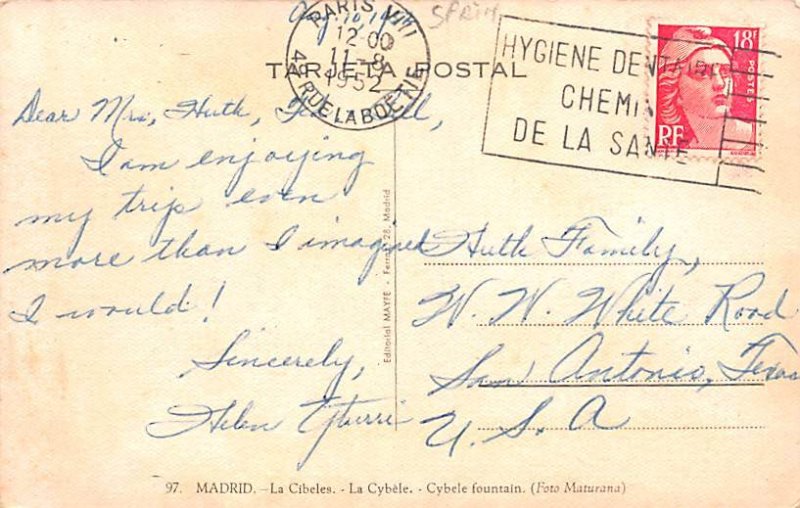 Aug. 10, 1952
PARIS VIII
12 00
11-8
1952
48 RUE LA BOETIE
TARJETA POSTAL
HYGIENE DENTAIRE
CHEMIN
DE LA SANTE
18F
POSTES
RF
Dear Mrs. Huth,
I am enjoying
my trip even
more than I imagined
I would!
Sincerely,
Helen Yturri
Editorial MAYFE - Ferraz 28, Madrid
Huth Family,
W. W. White Road
San Antonio, Texas
U. S. A
97. MADRID. - La Cibeles. - La Cybèle. - Cybele fountain. (Foto Maturana)